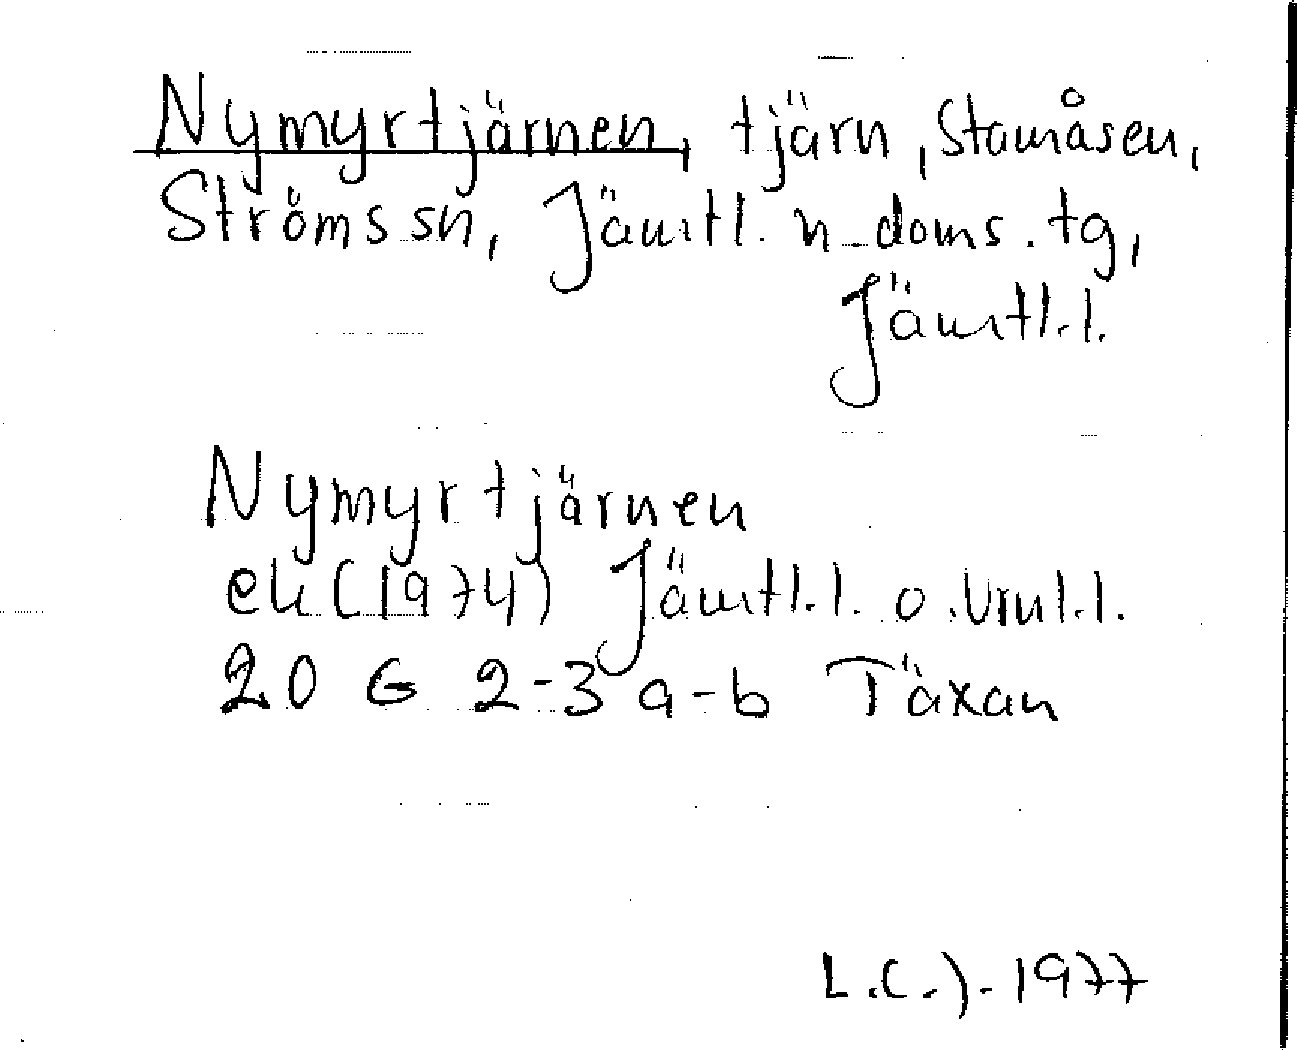 Nymyrtjärnen, tjärn, Stamåsen,
Ströms sn, Jämtl. n. doms. tg,
Jämtl. l.
Nymyrtjärnen
ek (1974) Jämtl. l. o. Vrml. l.
20 G 2-3 a-b Täxan
L.C.J. 1977